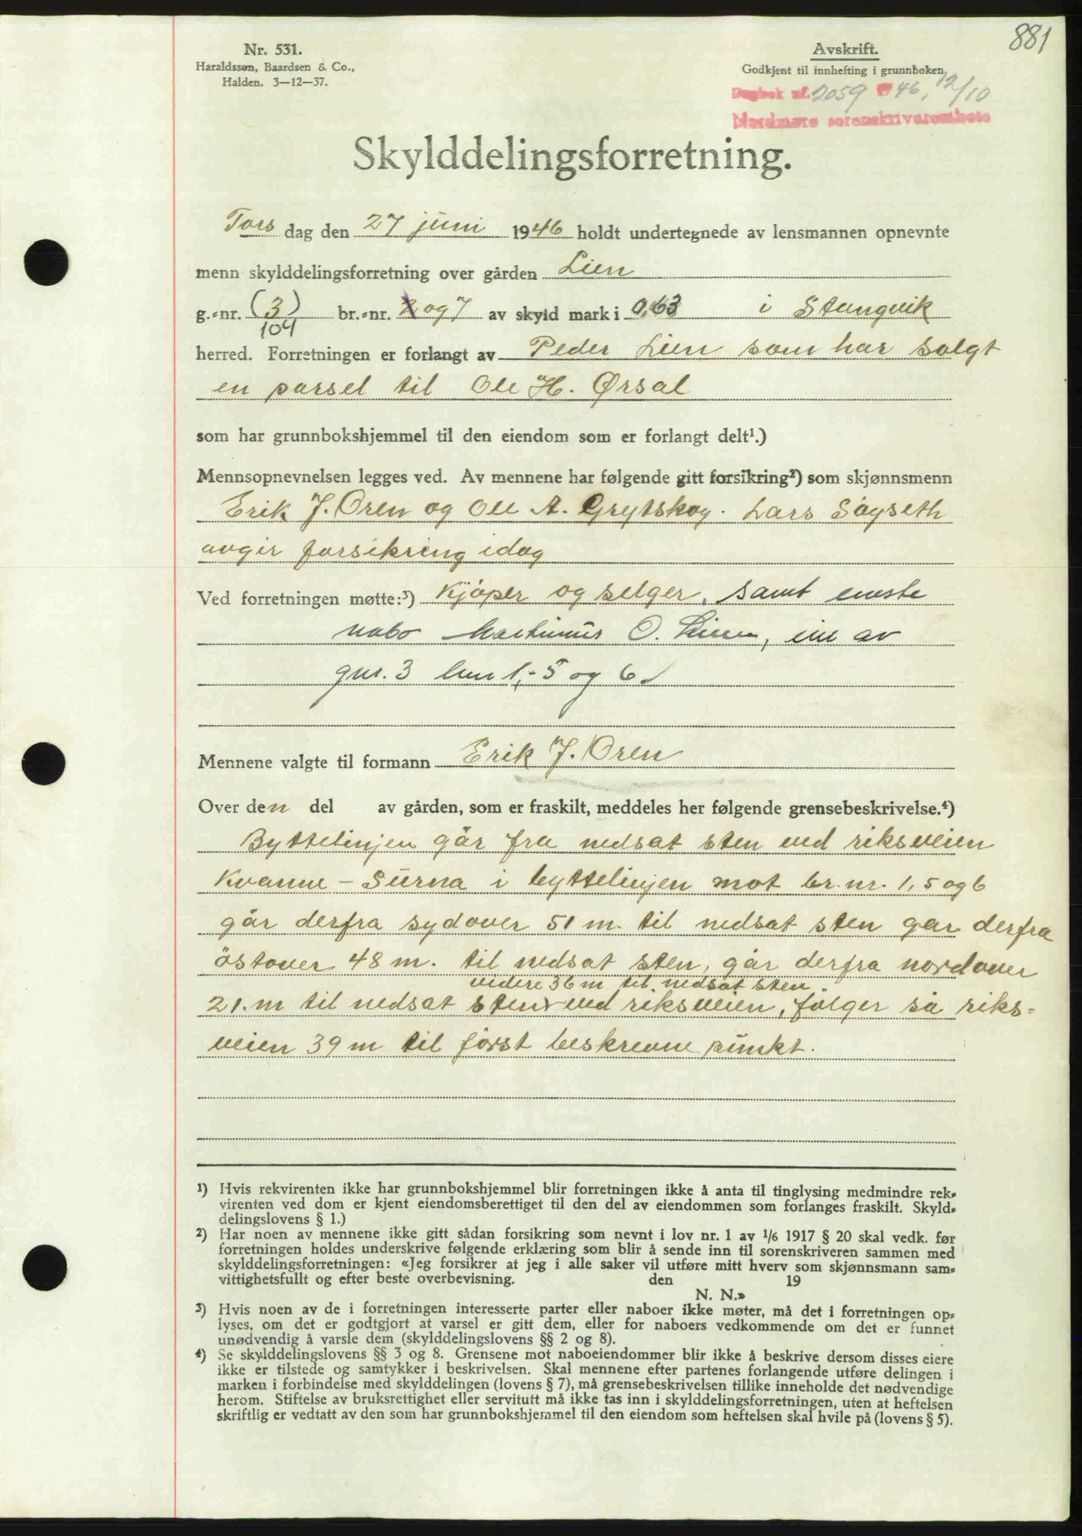 881
Nr. 531.
Haraldssøn, Baardsen & Co.,
Halden. 3—12—37.
Avskrift.
Godkjent til innhefting i grunnboken
Dagbok nr. 2059 46, 12/10
Nordmøre sorenskriverembete
Skylddelingsforretning.
Tors dag den 27 juni 1946 holdt undertegnede av lensmannen opnevnte
menn skylddelingsforretning over gården Lien
g.-nr. (3) br.-nr. 2 og 7 av skyld mark i 0,63 i Stangvik
104
herred. Forretningen er forlangt av Peder Lien som har solgt
en parsel til Ole H. Ørsal
som har grunnbokshjemmel til den eiendom som er forlangt delt¹.)
Mennsopnevnelsen legges ved. Av mennene har følgende gitt forsikring²) som skjønnsmenn
Erik J. Øren og Ole A. Grytskog. Lars Søyseth
avgir forsikring idag
Ved forretningen møtte:³) Kjøper og selger, samt eneste
nabo Martinus O. Lien, eier av
gnr. 3 bnr 1,-5 og 6
Mennene valgte til formann Erik J. Øren
Over den del av gården, som er fraskilt, meddeles her følgende grensebeskrivelse.⁴)
Byttelinjen går fra nedsat sten ved riksveien
Kvanne – Surna i byttelinjen mot br. nr. 1, 5 og 6
går derfra sydover 51 m. til nedsat sten går derfra
östover 48 m. til nedsat sten, går derfra nordover
videre 36 m til nedsat sten
21. m til nedsat sten ved riksveien, følger så riks-
veien 39 m til først beskrevne punkt.
1) Hvis rekvirenten ikke har grunnbokshjemmel blir forretningen ikke å anta til tinglysing medmindre rek-
virenten ved dom er kjent eiendomsberettiget til den del av eiendommen som forlanges fraskilt. Skyld-
delingslovens § 1.)
2) Har noen av mennene ikke gitt sådan forsikring som nevnt i lov nr. 1 av 1/6 1917 § 20 skal vedk. før
forretningen holdes underskrive følgende erklæring som blir å sende inn til sorenskriveren sammen med
skylddelingsforretningen: «Jeg forsikrer at jeg i alle saker vil utføre mitt hverv som skjønnsmann sam-
vittighetsfullt og efter beste overbevisning. den 19
N. N.»
3) Hvis noen av de i forretningen interesserte parter eller naboer ikke møter, må det i forretningen op-
lyses, om det er godtgjort at varsel er gitt dem, eller for naboers vedkommende om det er funnet
unødvendig å varsle dem (skylddelingslovens §§ 2 og 8).
4) Se skylddelingslovens §§ 3 og 8. Grensene mot naboeiendommer blir ikke å beskrive dersom disses eiere
ikke er tilstede og samtykker i beskrivelsen. Skal mennene efter partenes forlangende utføre delingen i
marken i forbindelse med skylddelingen (lovens § 7), må grensebeskrivelsen tillike inneholde det nødvendige
herom. Stiftelse av bruksrettighet eller servitutt må ikke tas inn i skylddelingsforretningen, uten at heftelsen
skriftlig er vedtatt av den som har grunnbokshjemmel til den eiendom som heftelsen skal hvile på (lovens § 5).